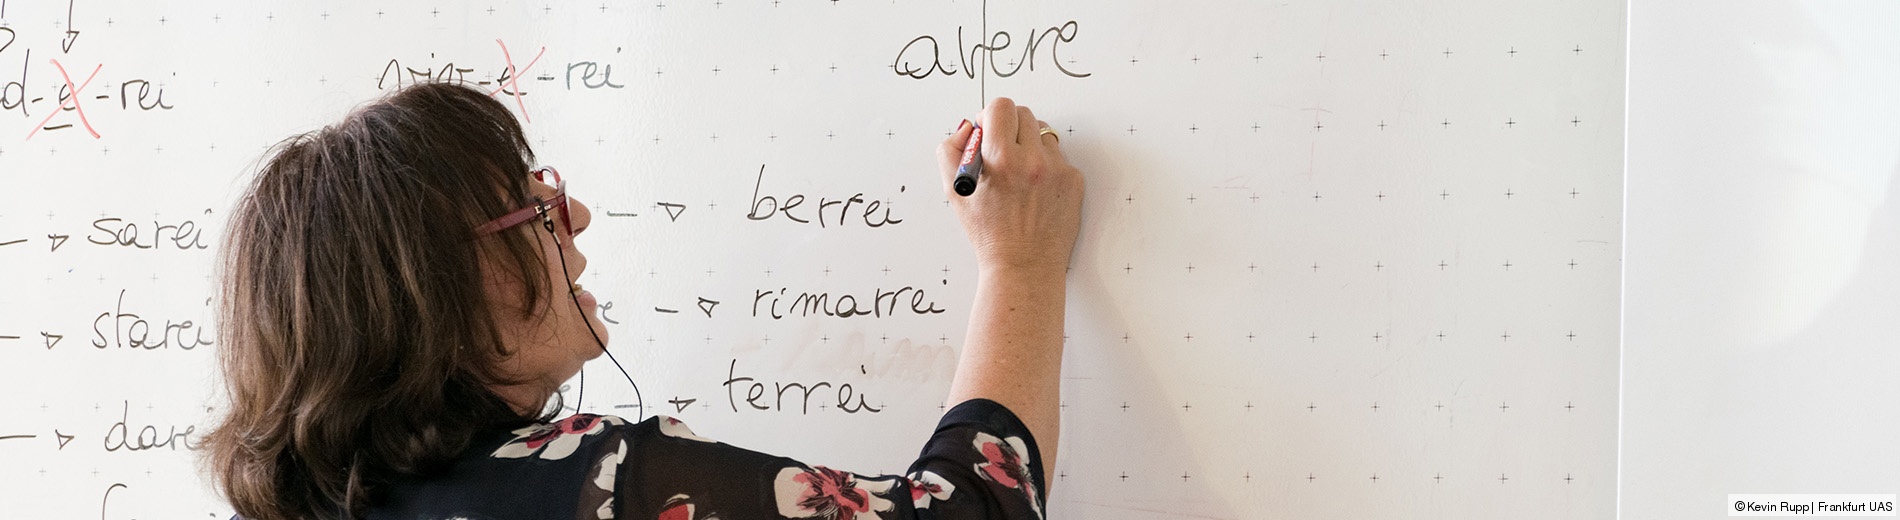 avere
d-e-rei
viv-e-rei
sarei → berrei
starei → rimarrei
dare → terrei
©Kevin Rupp| Frankfurt UAS